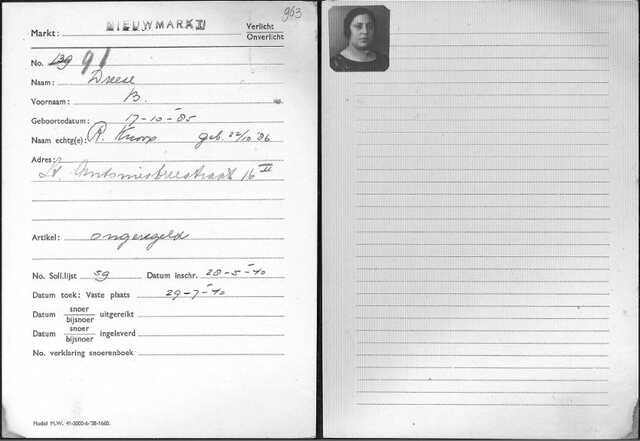 963
Markt: NIEUWMARKT Verlicht
Onverlicht
No. 139 91
Naam: Dreese
Voornaam: B.
Geboortedatum: 17-10-85
Naam echtg(e): R. Knorp geb. 22/10 '86
Adres:
St. Antoniesbreestraat 16 II
Artikel: ongeregeld
No. Soll.lijst 59 Datum inschr. 28-5-40
Datum toek: Vaste plaats 29-7-40
Datum snoer
bijsnoer uitgereikt
Datum snoer
bijsnoer ingeleverd
No. verklaring snoerenboek
Model M.W. 41-3000-6-'38-1660.